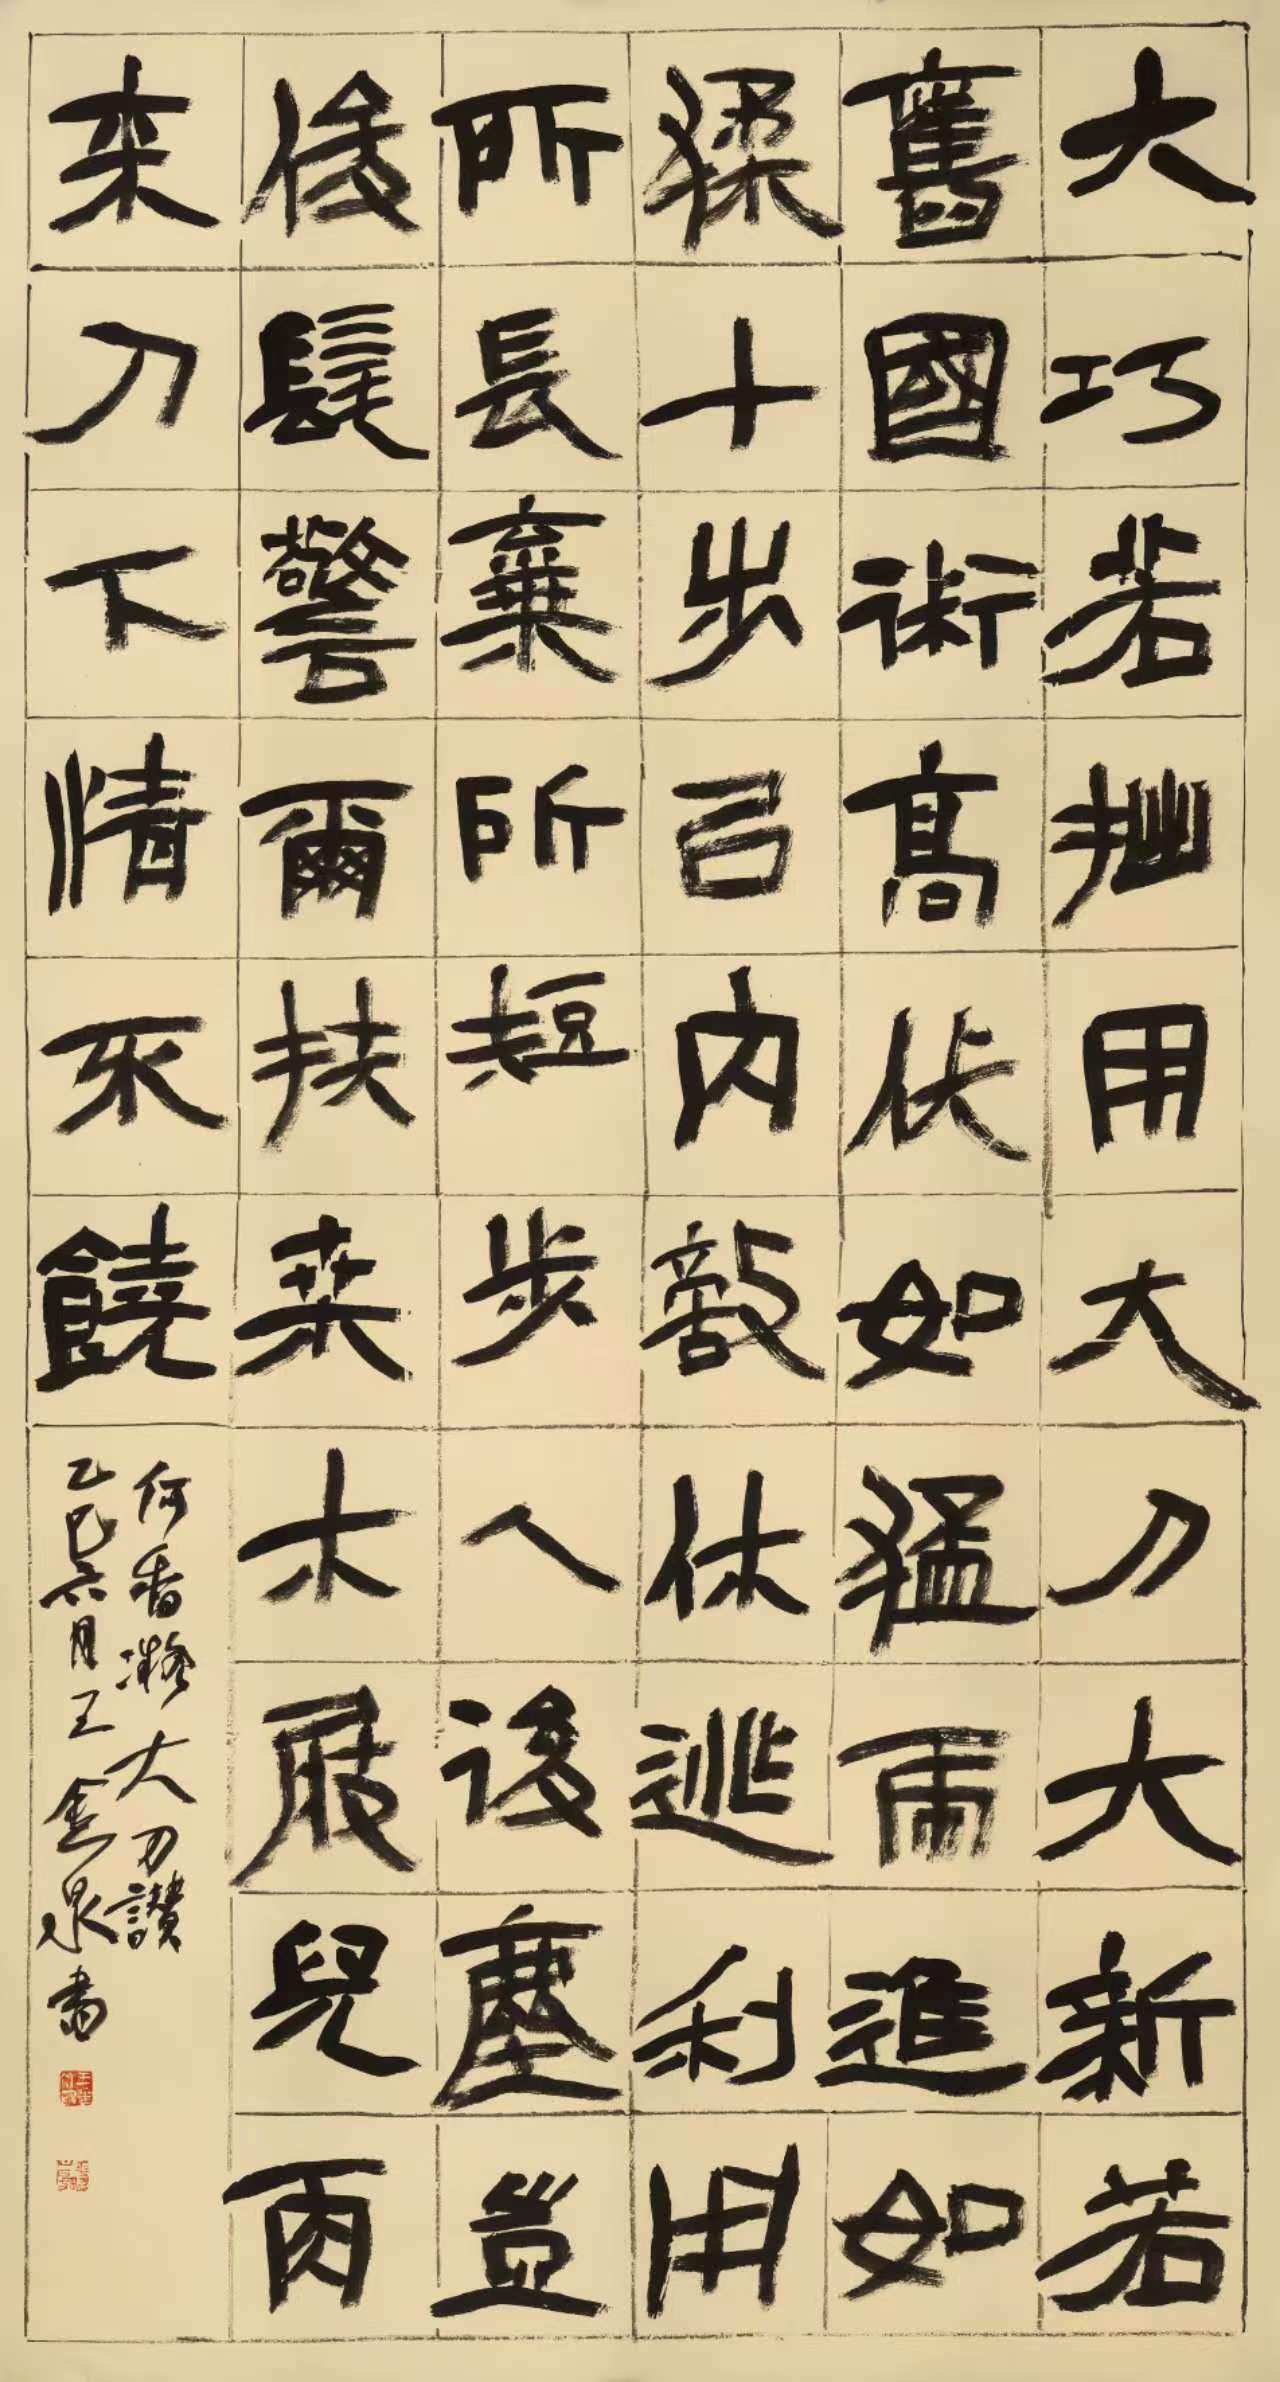 大巧若拙用大刀大新若
舊國術高伏如猛虎進如
猱十步已内敵休逃利用
所長棄所短步人後塵豈
俊髦警爾扶桑木屐兒再
來刀下情不饒
何香凝大刀讚
乙巳六月王金泉書